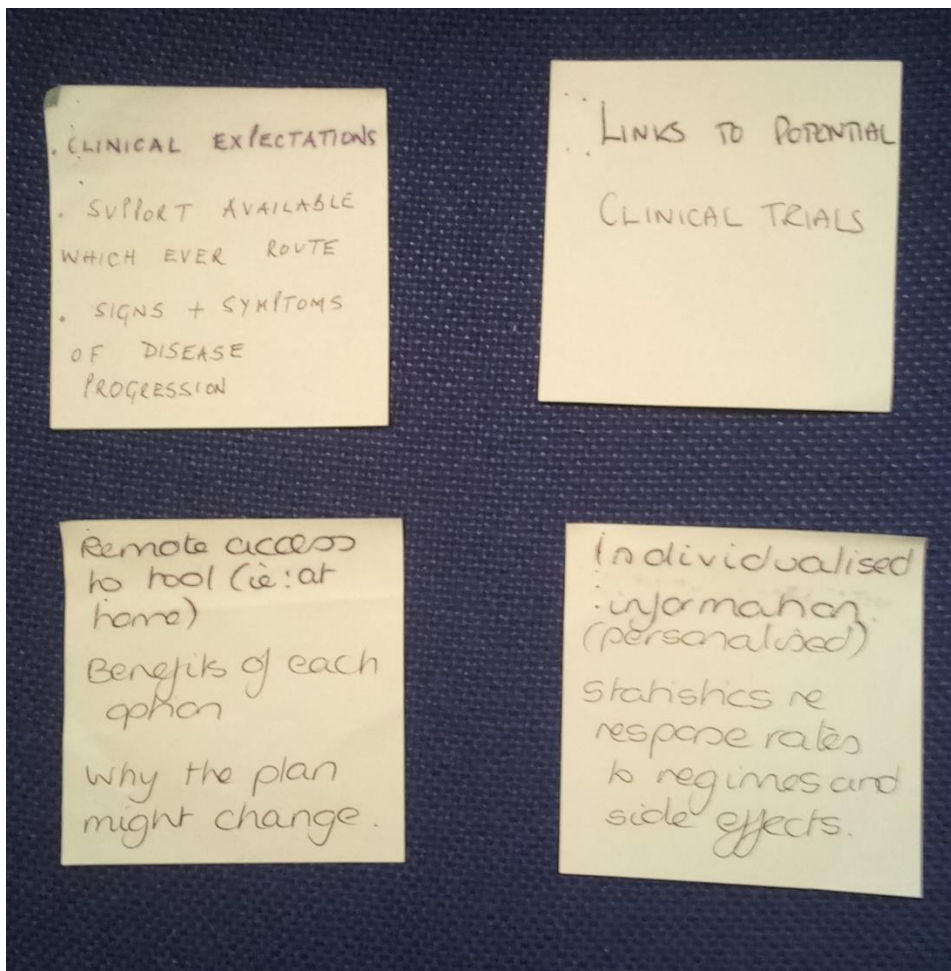 . CLINICAL EXPECTATIONS
. SUPPORT AVAILABLE
WHICH EVER ROUTE
. SIGNS + SYMPTOMS
OF DISEASE
PROGRESSION
LINKS TO POTENTIAL
CLINICAL TRIALS
Remote access
to tool (ie: at
home)
Benefits of each
option
Why the plan
might change.
Individualised
information
(personalised)
Statistics re
response rates
to regimes and
side effects.